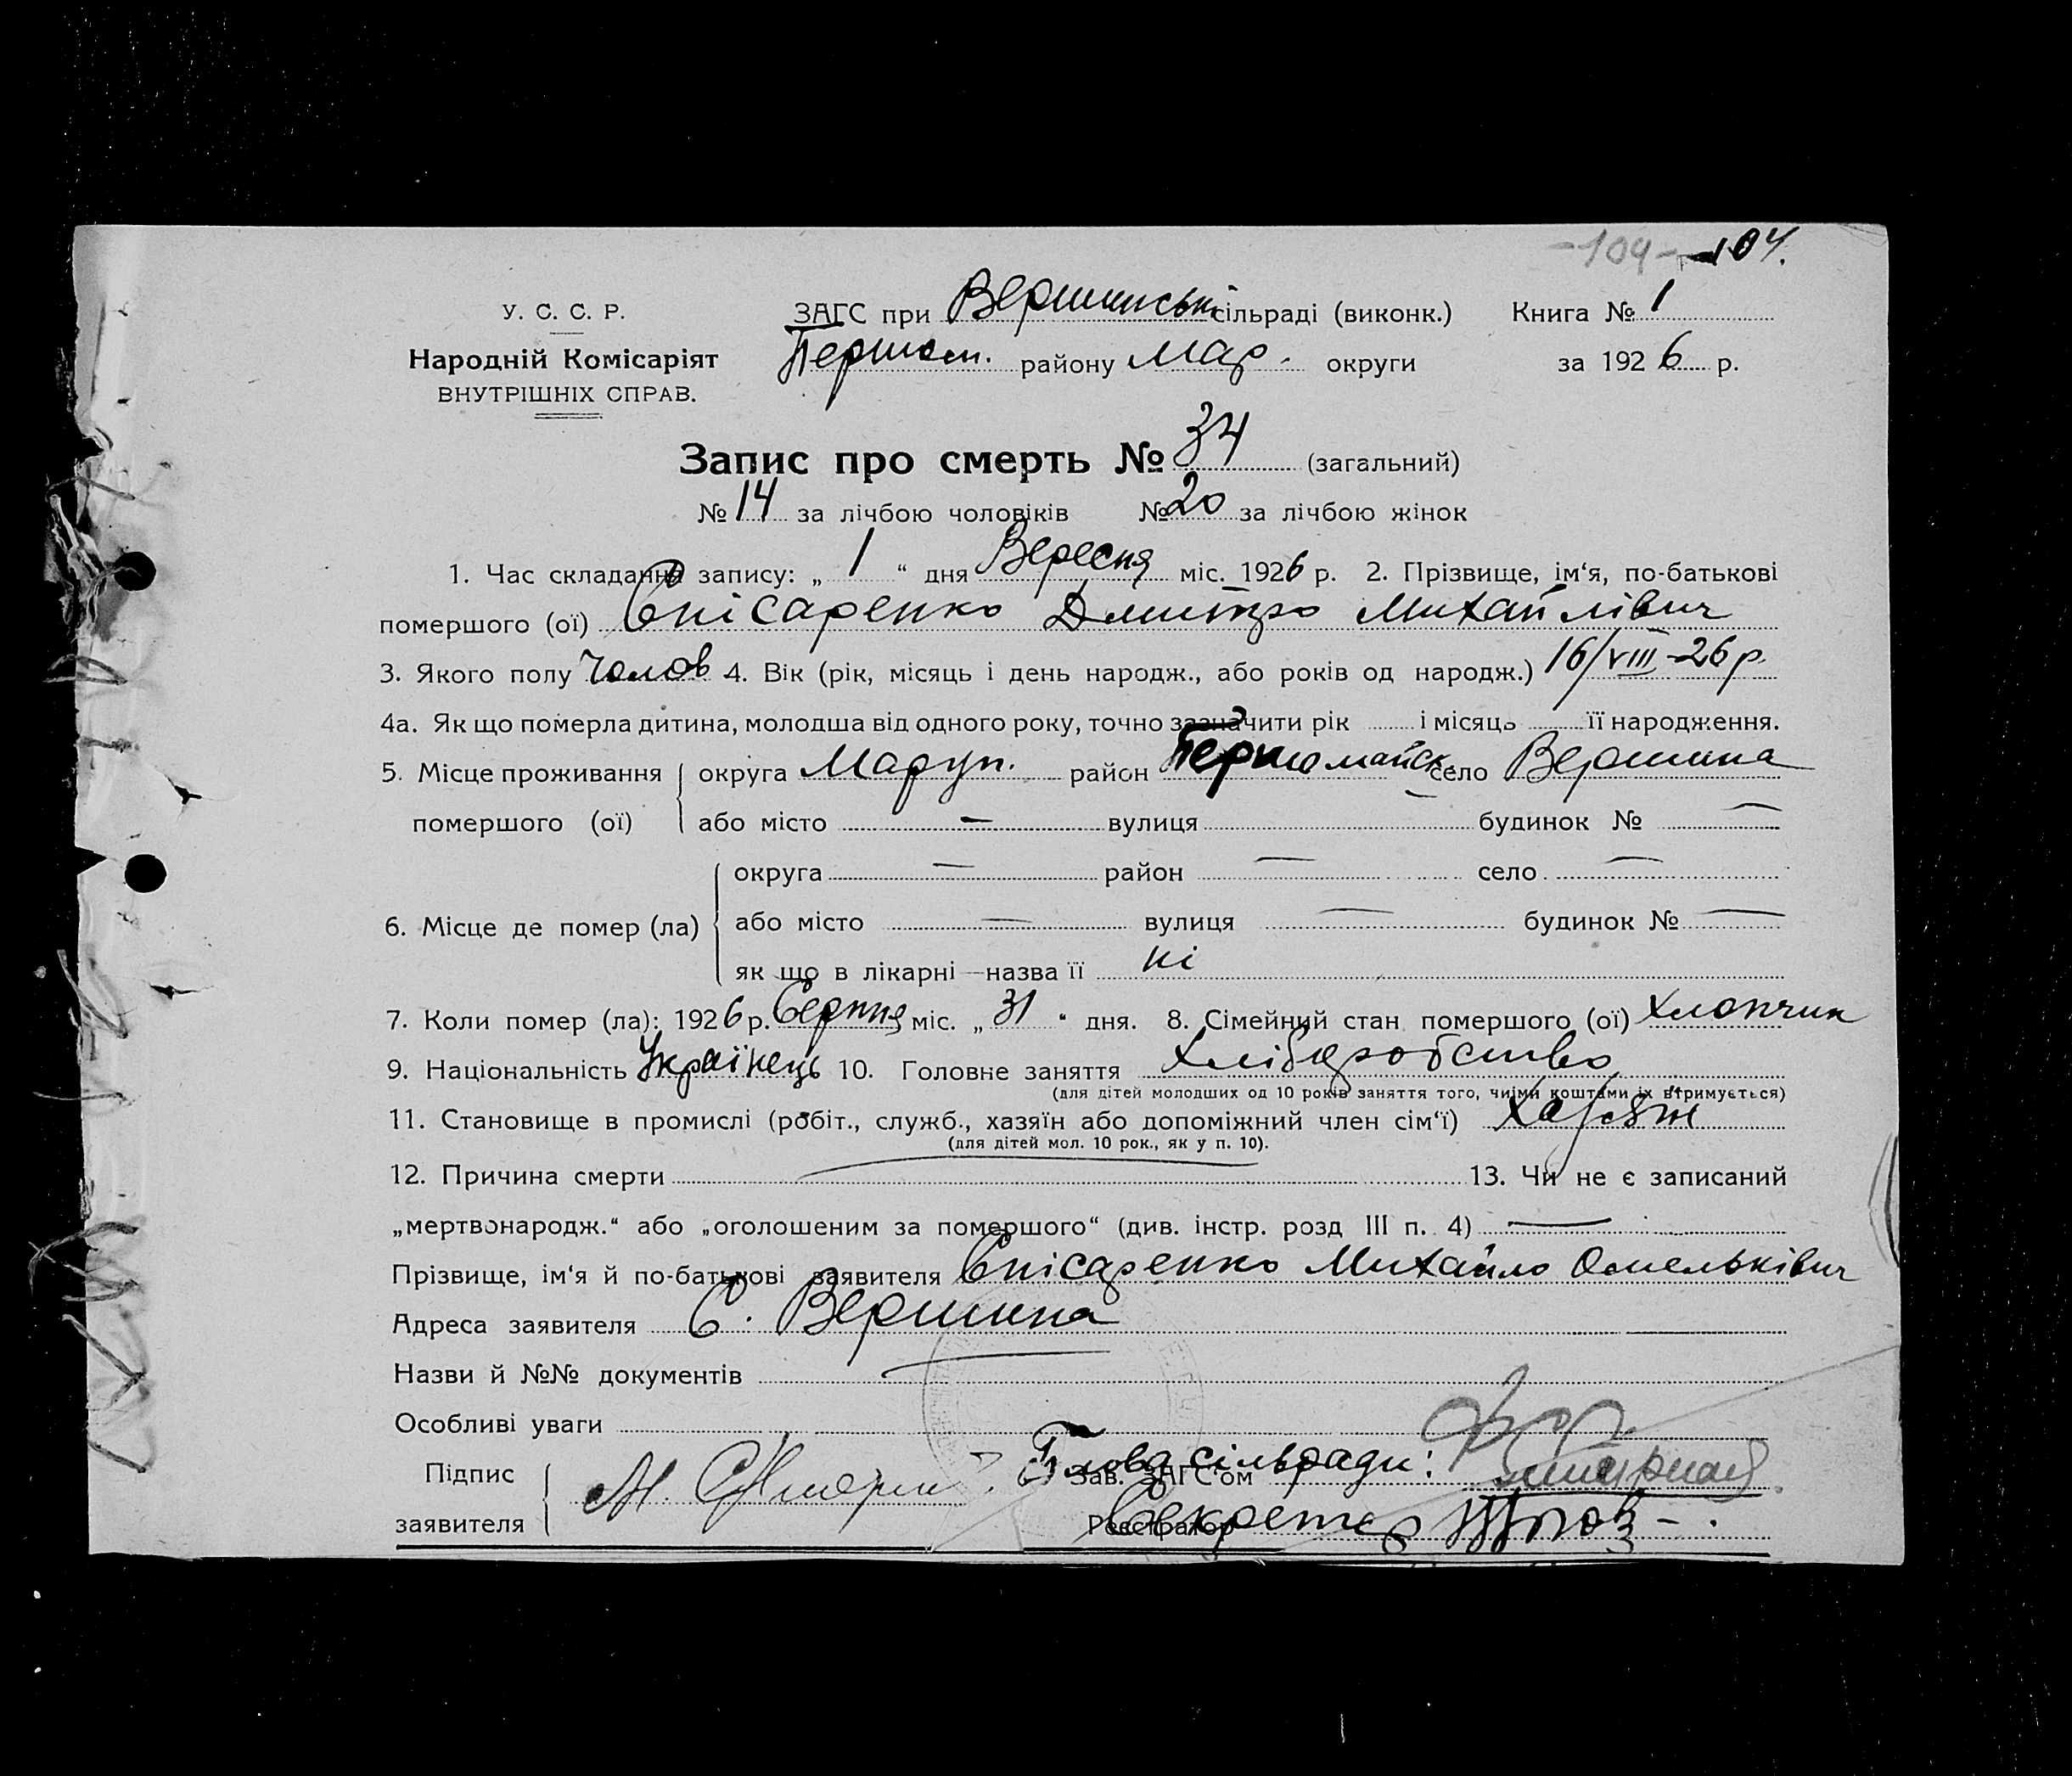 -104- -104.
У. С. С. Р. ЗАГС при Вершинські сільраді (виконк.) Книга № 1
Народній Комісаріят Першом. району Мар. округи за 1926 р.
ВНУТРІШНІХ СПРАВ.
Запис про смерть № 34 (загальний)
№ 14 за лічбою чоловіків № 20 за лічбою жінок
1. Час складання запису: „ 1 “ дня Вересня міс. 1926 р. 2. Прізвище, ім‘я, по-батькові
помершого (ої) Спісаренко Дмитро Михайлівич
3. Якого полу Чолов 4. Вік (рік, місяць і день народж., або років од народж.) 16/VIII-26 р.
4а. Як що померла дитина, молодша від одного року, точно зазначити рік і місяць її народження.
5. Місце проживання округа Маруп. район Першомайськ село Вершина
помершого (ої) або місто — вулиця будинок № —
округа — район — село —
6. Місце де помер (ла) або місто — вулиця — будинок № —
як що в лікарні—назва її ні
7. Коли помер (ла): 1926 р. Серпня міс. „ 31 “ дня. 8. Сімейний стан помершого (ої) Хлопчик
9. Національність Українець 10. Головне заняття Хліборобство
(для дітей молодших од 10 років заняття того, чиїми коштами їх втримується)
11. Становище в промислі (робіт., служб., хазяїн або допоміжний член сім‘ї)
(для дітей мол. 10 рок., як у п. 10).
12. Причина смерти — 13. Чи не є записаний
„мертвонародж.“ або „оголошеним за помершого“ (див. інстр. розд III п. 4) —
Прізвище, ім‘я й по-батькові заявителя Спісаренко Михайло Омельківич
Адреса заявителя С. Вершина
Назви й №№ документів —
Особливі уваги
Підпис М. Голова сільради: Зав. ЗАГС‘ом
заявителя Секретар Реєстратор